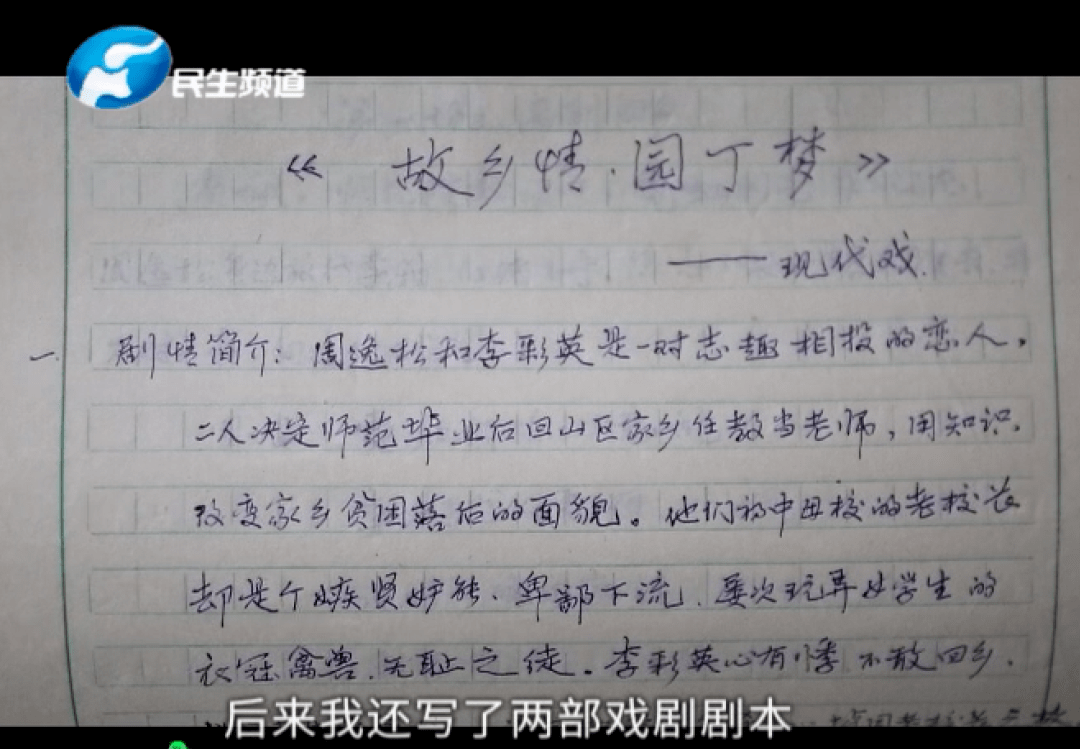 民生频道
《故乡情·园丁梦》
——现代戏.
一. 剧情简介：周逸松和李彩英是一对志趣相投的恋人。
二人决定师范毕业后回山区家乡任教当老师，用知识.
改变家乡贫困落后的面貌。他们初中母校的老校长
却是个嫉贤妒能、卑鄙下流、屡次玩弄女学生的
衣冠禽兽.无耻之徒。李彩英心有悸不敢回乡.
后来我还写了两部戏剧剧本